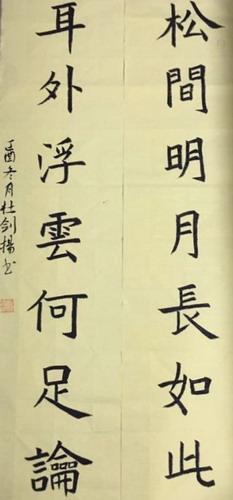 松間明月長如此
耳外浮雲何足論
丁酉冬月杜剑揚书